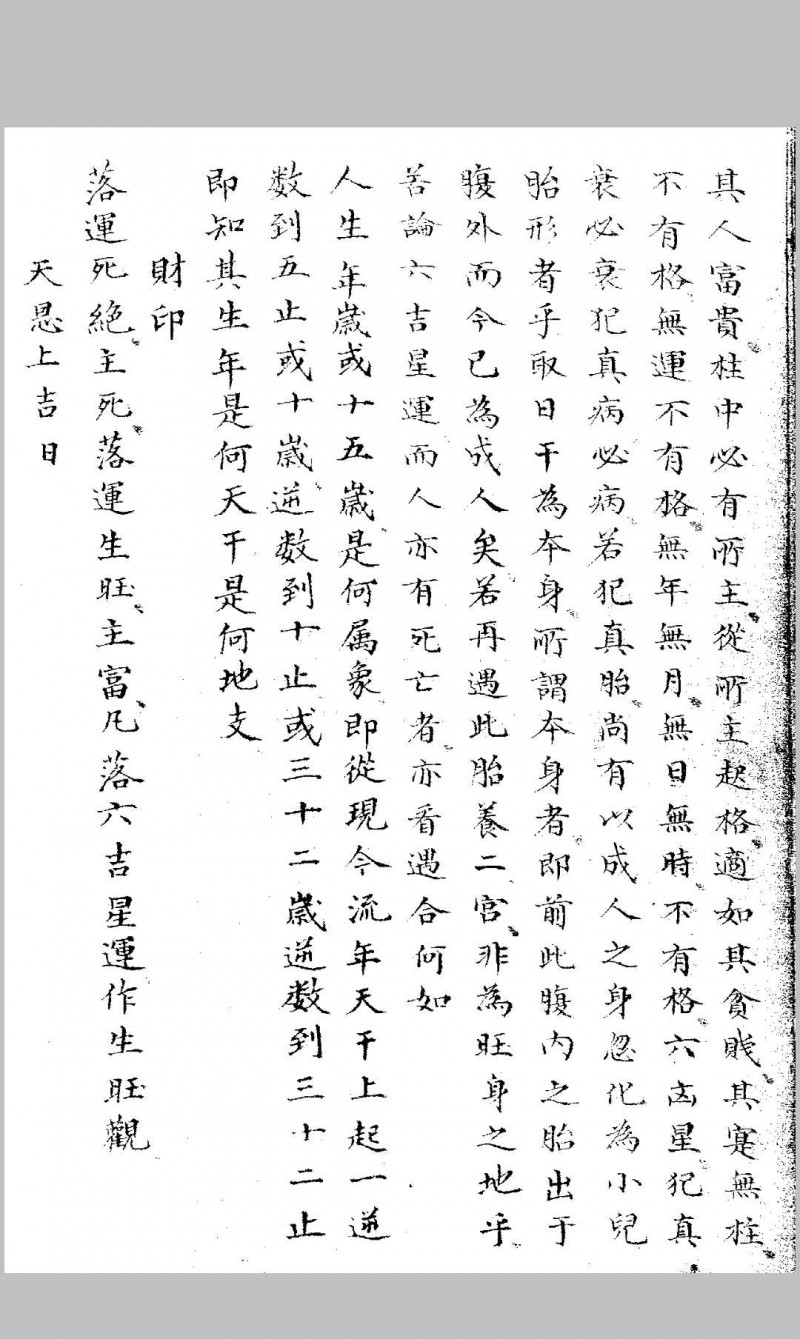 其人富貴柱中必有所主從所主起格適如其貧賤其寔無柱
不有格無運不有格無年無月無日無時不有格六凶星犯真
衰必衰犯真病必病若犯真胎尚有以成人之身忽化為小兒
胎形者乎取日干為本身所謂本身者即前此腹內之胎出于
腹外而今已為成人矣若再遇此胎養二宮非為旺身之地乎
若論六吉星運而人亦有死亡者亦看遇合何如
人生年歲或十五歲是何属象即從現今流年天干上起一逆
数到五止或十歲逆数到十止或三十二歲逆数到三十二止
即知其生年是何天干是何地支
財印
落運死絕主死落運生旺主富凡落六吉星運作生旺觀
天恩上吉日